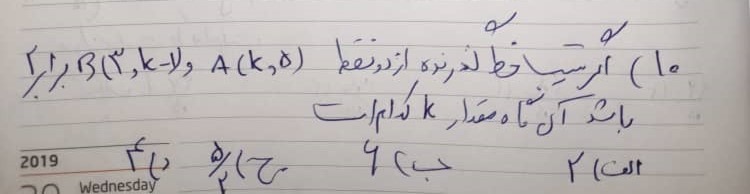 ۱۰) اگر شیب خط گذرنده از دو نقطه A(k,۵) و B(۳,k-۷) برابر ۲
باشد آن گاه مقدار k کدام است
الف) ۲ ب) ۶ ج) ۵/۲ د) ۴
2019
Wednesday